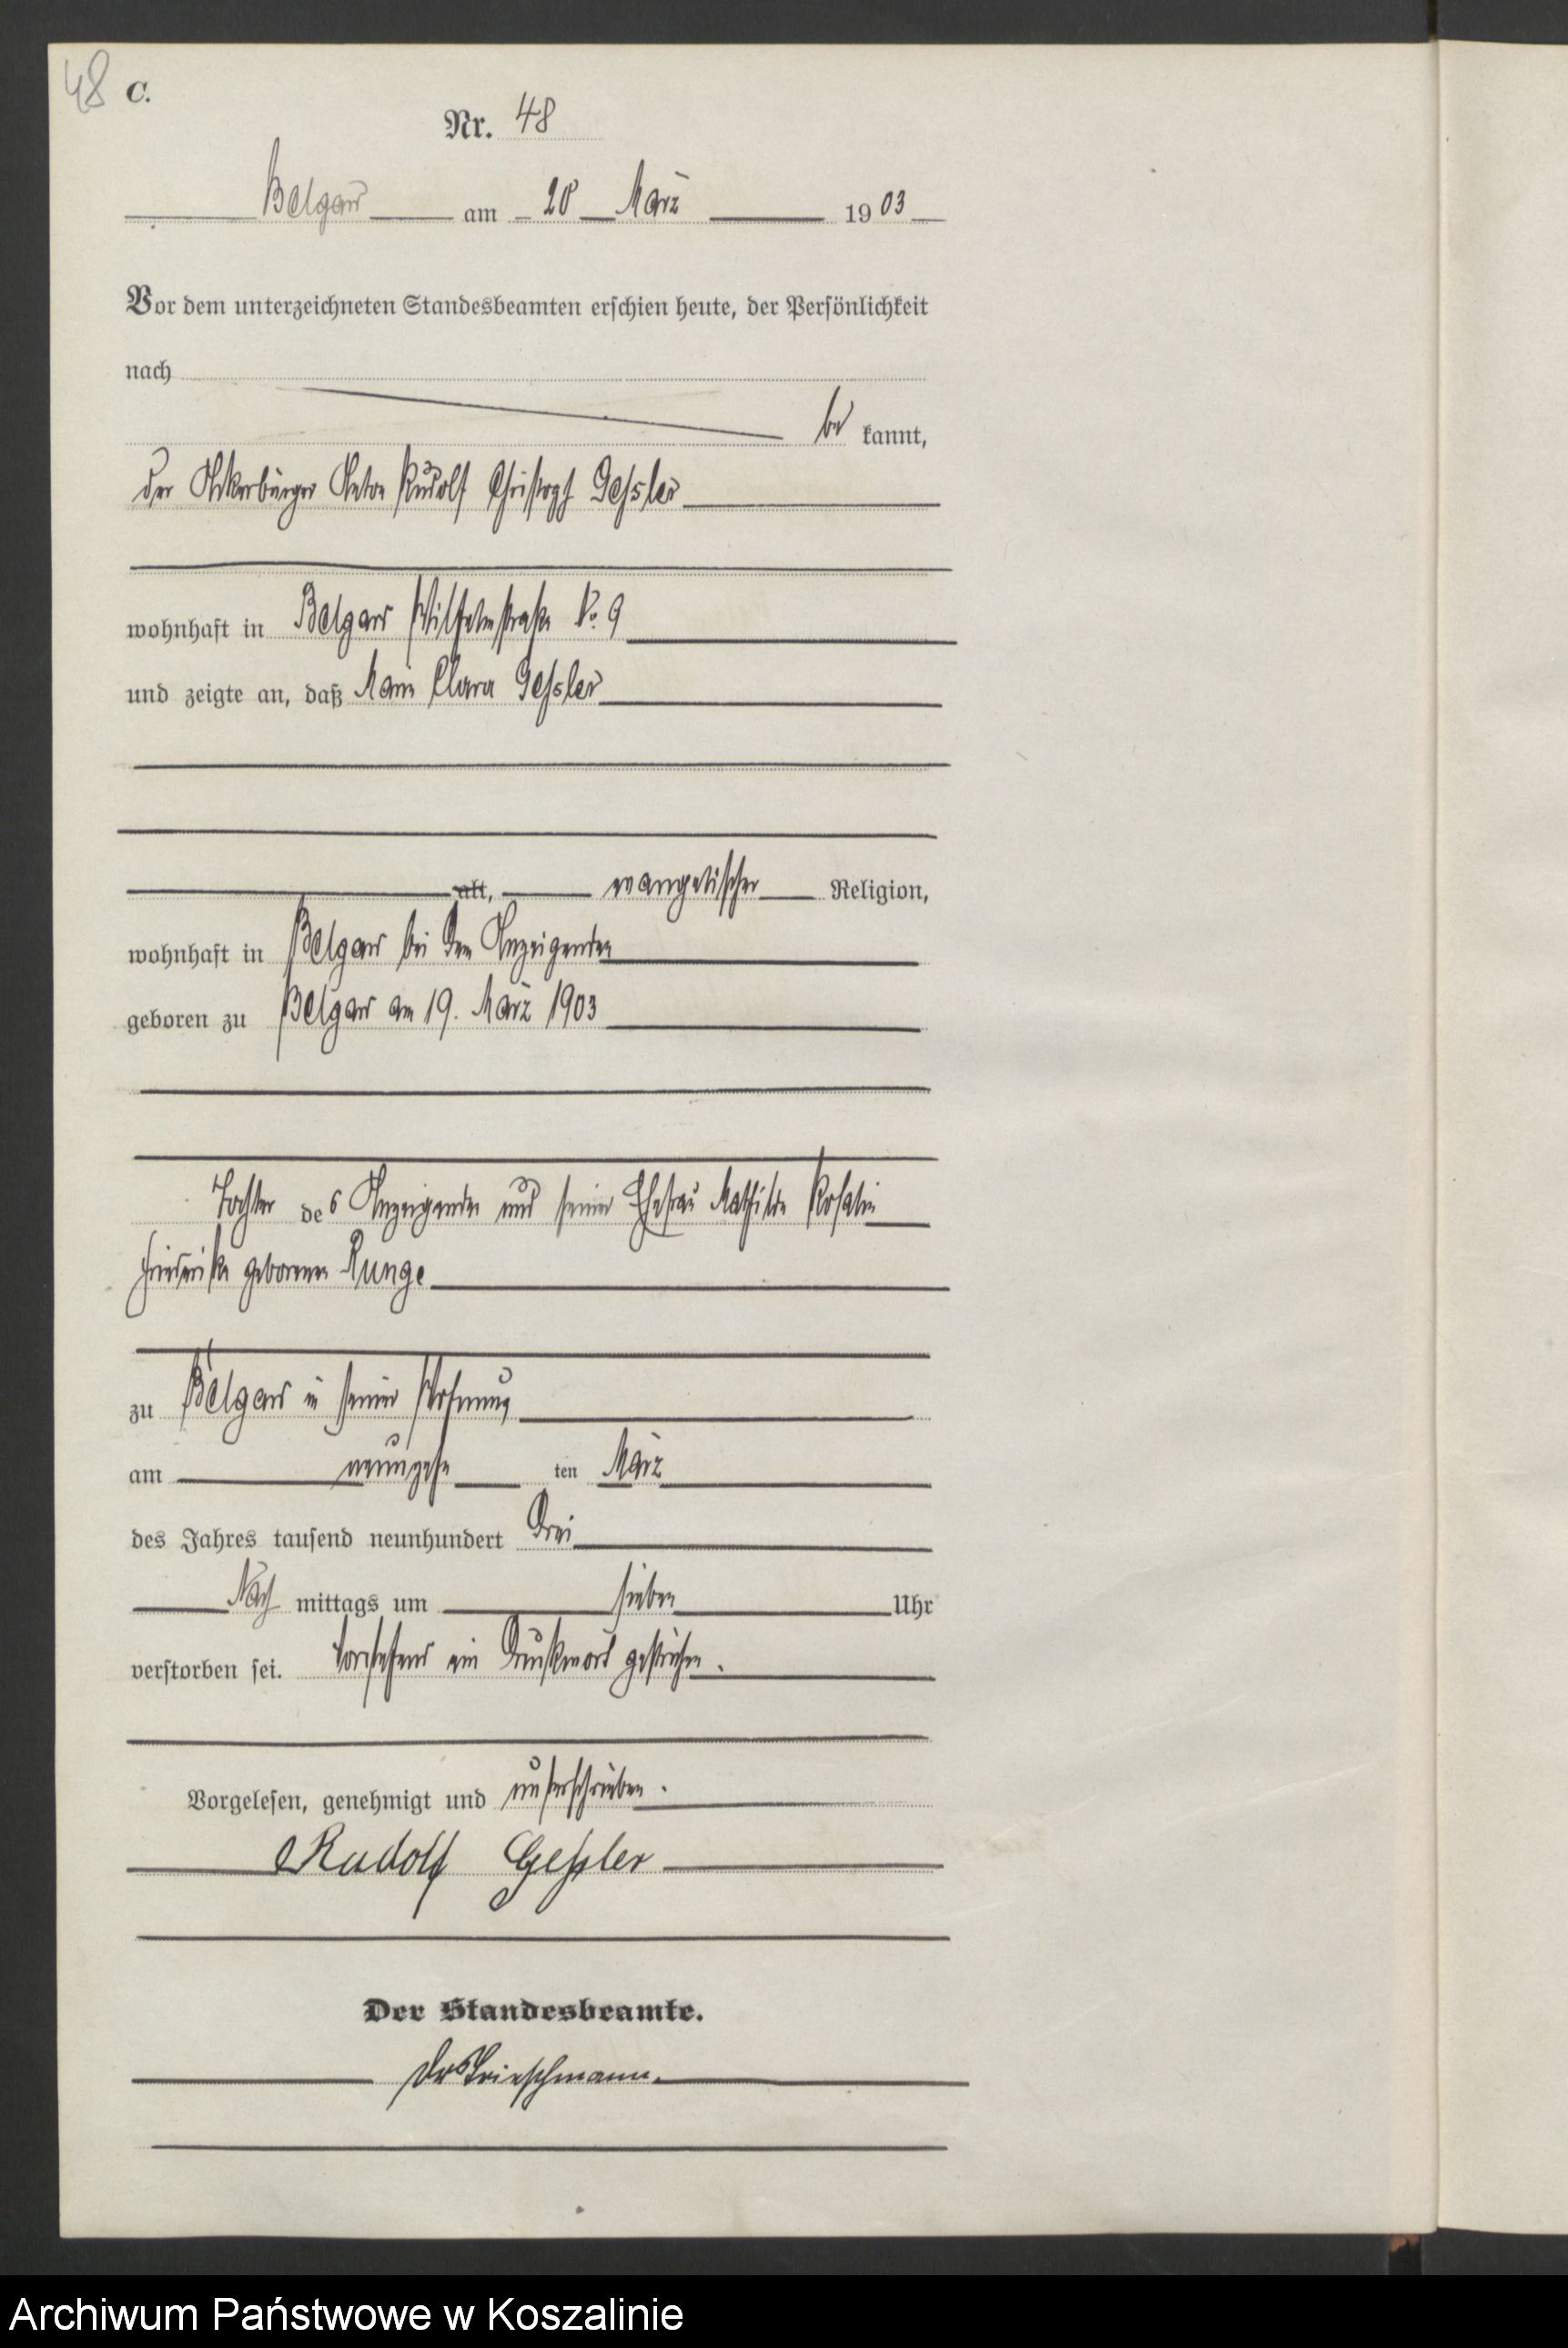 48 C.
Nr. 48
Belgard am 20 März 1903
Vor dem unterzeichneten Standesbeamten erschien heute, der Persönlichkeit
nach
be kannt,
der Ackerbürger Rudolf Christoph Gessler
wohnhaft in Belgard Wilhelmstraße No. 9
und zeigte an, daß Clara Gessler
alt, evangelischer Religion,
wohnhaft in Belgard bei dem Anzeigenden
geboren zu Belgard am 19. März 1903
Tochter des Anzeigenden und seiner Ehefrau Mathilde Rosalie
Friederike geborenen Runge
zu Belgard in seiner Wohnung
am neunzehn ten März
des Jahres tausend neunhundert drei
Nach mittags um sieben Uhr
verstorben sei. Vorstehend ein Druckwort gestrichen.
Vorgelesen, genehmigt und unterschrieben.
Rudolf Geßler
Der Standesbeamte.
Archiwum Państwowe w Koszalinie